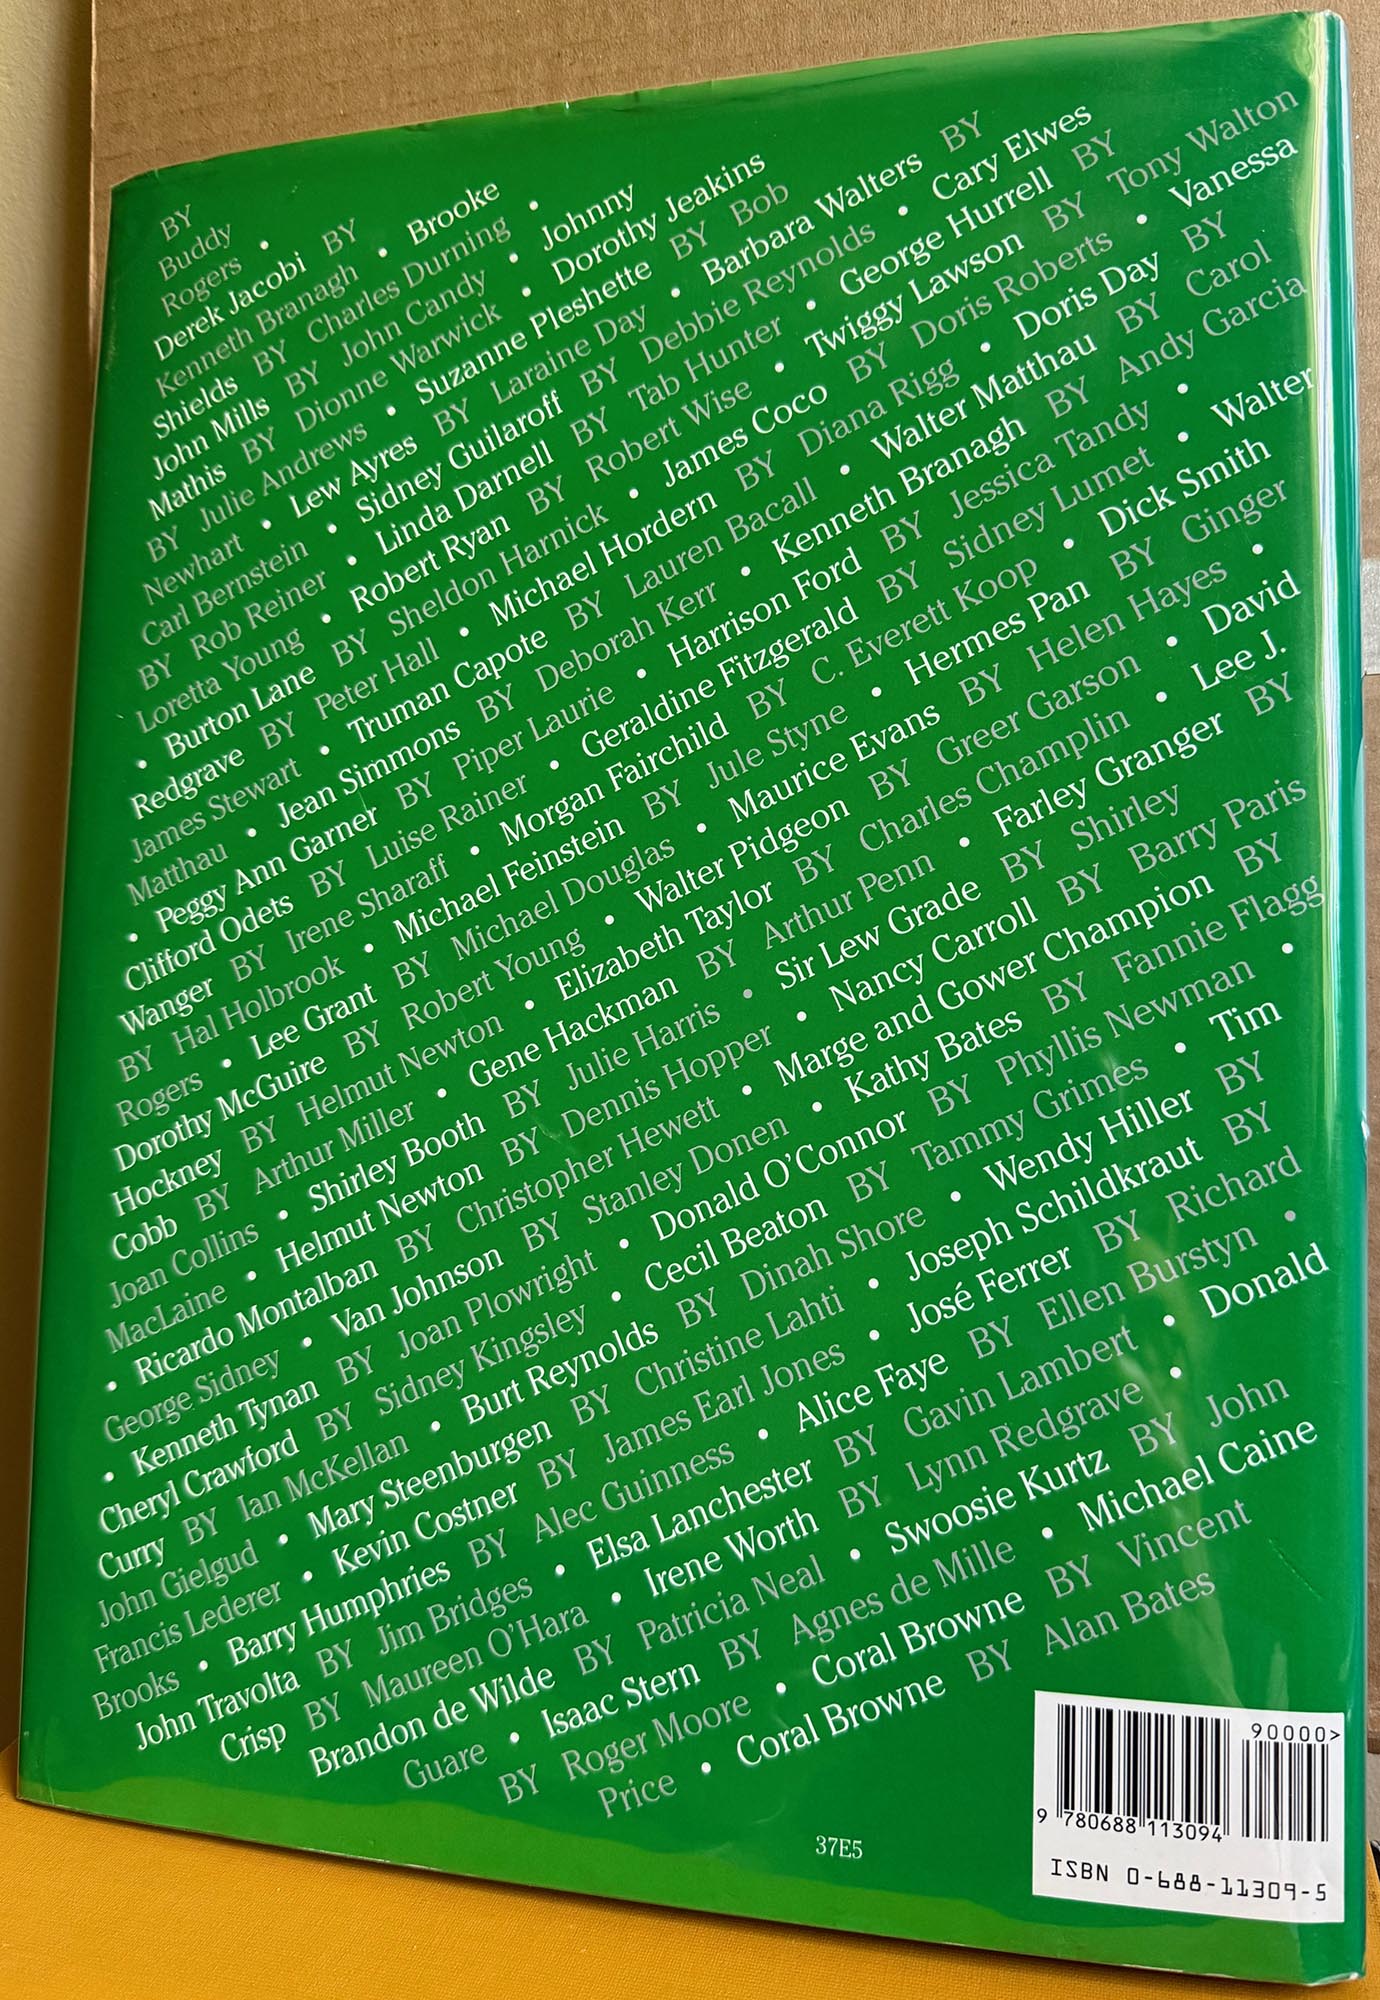 BY
Buddy
Rogers •
Derek Jacobi BY
Kenneth Branagh • Brooke
Shields BY Charles Durning •
John Mills BY John Candy • Johnny
Mathis BY Dionne Warwick • Dorothy Jeakins
BY Julie Andrews • Suzanne Pleshette BY Bob
Newhart • Lew Ayres BY Laraine Day • Barbara Walters BY
Carl Bernstein • Sidney Guilaroff BY Debbie Reynolds • Cary Elwes
BY Rob Reiner • Linda Darnell BY Tab Hunter • George Hurrell BY
Loretta Young • Robert Ryan BY Robert Wise • Twiggy Lawson BY Tony Walton
• Burton Lane BY Sheldon Harnick • James Coco BY Doris Roberts • Vanessa
Redgrave BY Peter Hall • Michael Hordern BY Diana Rigg • Doris Day BY
James Stewart • Truman Capote BY Lauren Bacall • Walter Matthau BY Carol
Matthau • Jean Simmons BY Deborah Kerr • Kenneth Branagh BY Andy Garcia
• Peggy Ann Garner BY Piper Laurie • Harrison Ford BY Jessica Tandy •
Clifford Odets BY Luise Rainer • Geraldine Fitzgerald BY Sidney Lumet • Walter
Wanger BY Irene Sharaff • Morgan Fairchild BY C. Everett Koop • Dick Smith
BY Hal Holbrook • Michael Feinstein BY Jule Styne • Hermes Pan BY Ginger
Rogers • Lee Grant BY Michael Douglas • Maurice Evans BY Helen Hayes •
Dorothy McGuire BY Robert Young • Walter Pidgeon BY Greer Garson • David
Hockney BY Helmut Newton • Elizabeth Taylor BY Charles Champlin • Lee J.
Cobb BY Arthur Miller • Gene Hackman BY Arthur Penn • Farley Granger BY
Joan Collins • Shirley Booth BY Julie Harris • Sir Lew Grade BY Shirley
MacLaine • Helmut Newton BY Dennis Hopper • Nancy Carroll BY Barry Paris
• Ricardo Montalban BY Christopher Hewett • Marge and Gower Champion BY
George Sidney • Van Johnson BY Stanley Donen • Kathy Bates BY Fannie Flagg
• Kenneth Tynan BY Joan Plowright • Donald O'Connor BY Phyllis Newman •
Cheryl Crawford BY Sidney Kingsley • Cecil Beaton BY Tammy Grimes • Tim
Curry BY Ian McKellan • Burt Reynolds BY Dinah Shore • Wendy Hiller BY
John Gielgud • Mary Steenburgen BY Christine Lahti • Joseph Schildkraut BY
Francis Lederer • Kevin Costner BY James Earl Jones • José Ferrer BY Richard
Brooks • Barry Humphries BY Alec Guinness • Alice Faye BY Ellen Burstyn •
John Travolta BY Jim Bridges • Elsa Lanchester BY Gavin Lambert • Donald
Crisp BY Maureen O'Hara • Irene Worth BY Lynn Redgrave •
Brandon de Wilde BY Patricia Neal • Swoosie Kurtz BY John
Guare • Isaac Stern BY Agnes de Mille • Michael Caine
BY Roger Moore • Coral Browne BY Vincent
Price • Coral Browne BY Alan Bates
90000>
9 780688 113094
37E5
ISBN 0-688-11309-5